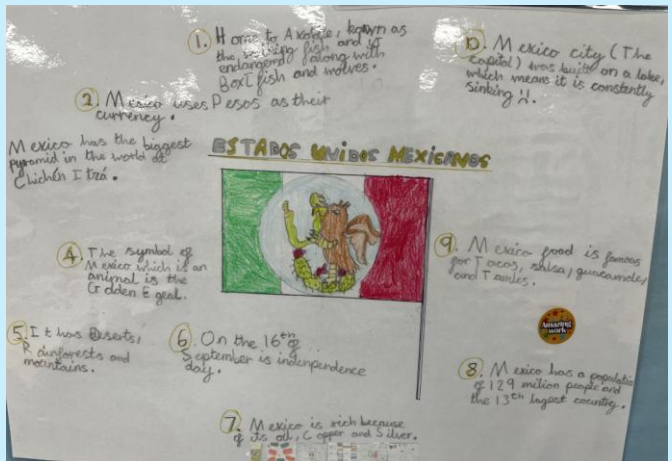 1. Home to Axolote, known as
the walking fish and it
endangered along with
Boxt fish and wolves.
10. Mexico city (The
capital) was built on a lake,
which means it is constantly
sinking !!.
2. Mexico uses Pesos as their
currency.
Mexico has the biggest
pyramid in the world at
Chichén Itzá.
ESTADOS UNIDOS MEXICANOS
4. The symbol of
Mexico which is an
animal is the
Golden Egeal.
9. Mexico food is famous
for Tacos, salsa, guacamole,
and Tamles.
Amazing
work
5. It has Deserts,
Rainforests and
mountains.
6. On the 16th of
September is independence
day.
8. Mexico has a population
of 129 million people and
the 13th largest country.
7. Mexico is rich because
of its oil, Copper and Silver.